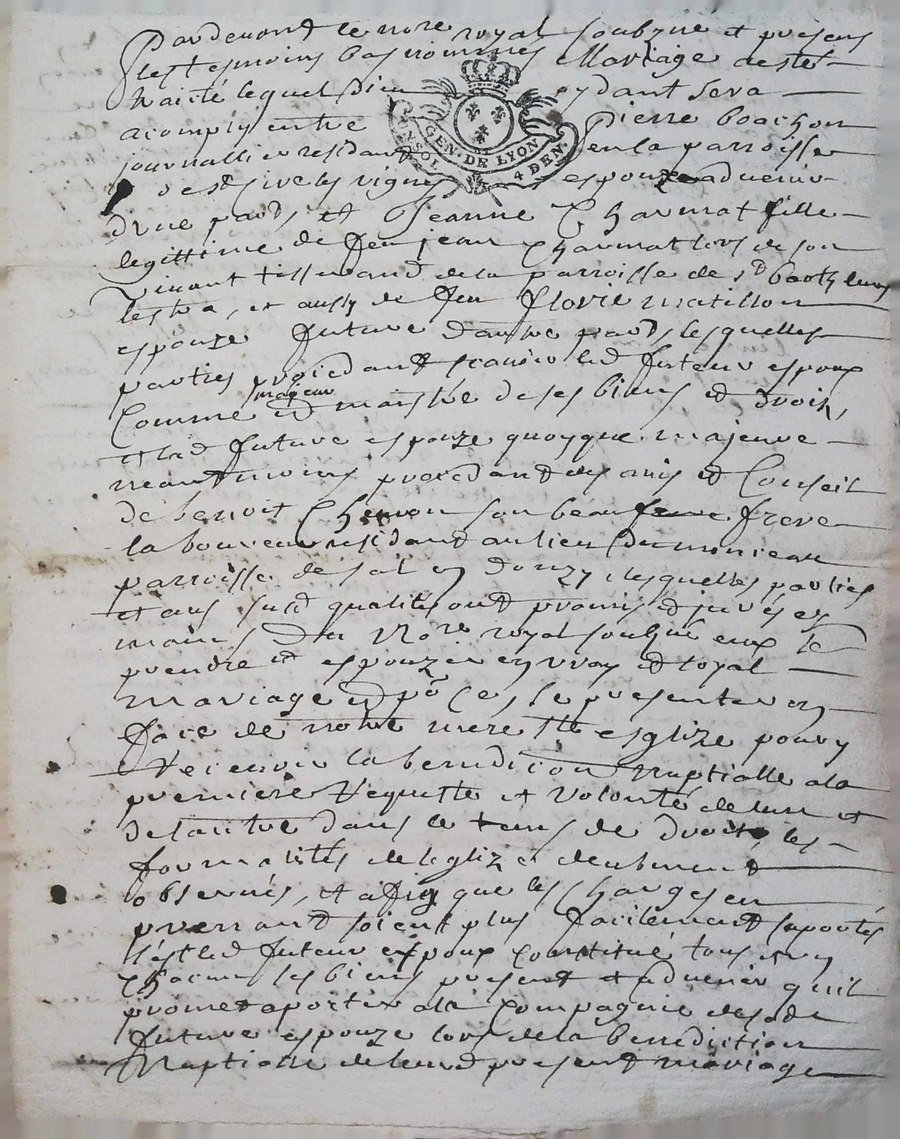 Pardevant le nore royal soubzne et presens
les tesmoins bas nommes Mariage a esté
traicté lequel Dieu aydant sera
acomply entre Pierre boachon
journallier residant en la parroisse
de st Cire les vignes espouze advenir
GEN. DE LYON
SOL 4 DEN.
d'une part, et Jeanne Charmat fille
legittime de feu jean Charmat lors de son
vivant tisserand de la parroisse de st barthelemy
lestra, et aussy de feu florie matillon
espouze future d'autre part, lesquelles
parties procedant scavoir led futur espoux
Comme majeur et maistre de ses biens et droits,
et lad future espouze quoyque majeure
neantmoins procedant des avis et Conseil
de benoit son beau frere
laboureur residant au lieu du monceau
parroisse de salt en donzy, lesquelles parties
et aux susd qualités ont promis et jurés es
mains du Nore royal soubsné eux se
prendre et espouzer en vray et loyal
mariage et po Ces, se presenter en
face de notre mere ste esglize pour y
recevoir la benediction nuptialle a la
premiere requette et volonté de l'un et
de l'autre dans le temps de droit, les
formalités de leglize deubment
observés, et afin que les charges en
prevenant soient plus facilement suportés
s'est led futeur expoux constitué tous et un
chacun ses biens present et advenir quil
promet aporter a la Compagnie de sad
future espouze lors de la benediction
Nuptialle de leurd present mariage